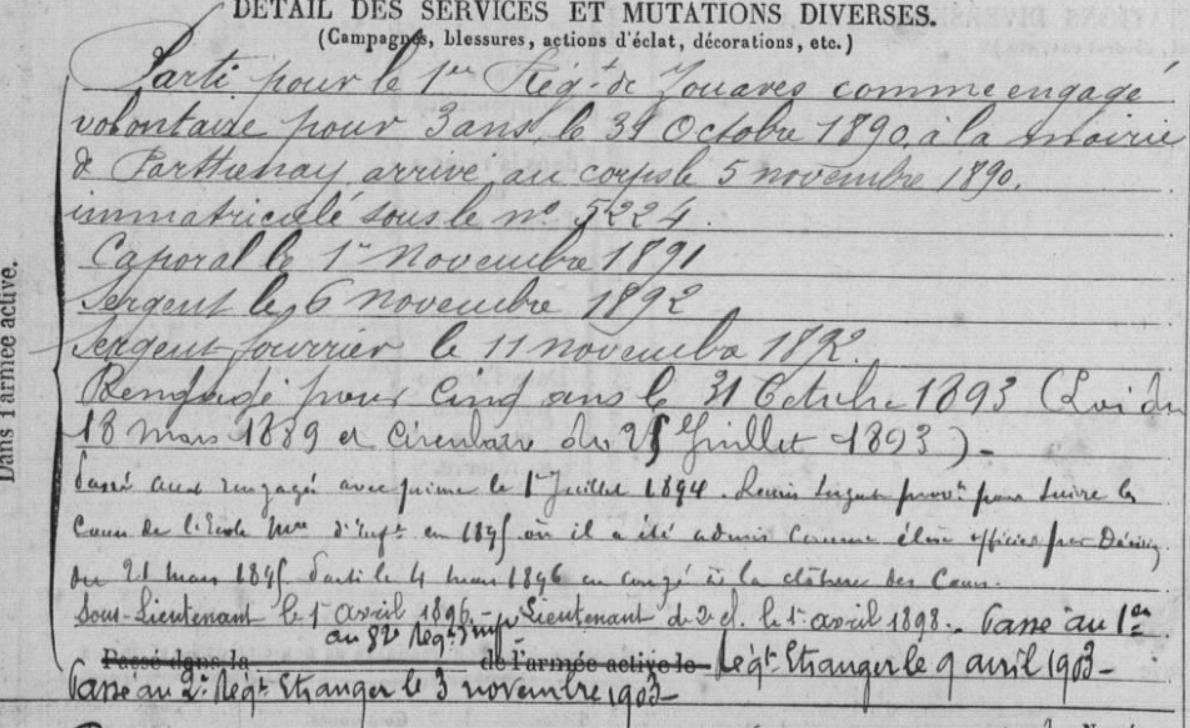 DÉTAIL DES SERVICES ET MUTATIONS DIVERSES.
(Campagnes, blessures, actions d'éclat, décorations, etc.)
Dans l'armée active.
Parti pour le 1er Régt de Zouaves comme engagé
volontaire pour 3 ans le 31 Octobre 1890, à la mairie
de Parthenay arrivé au corps le 5 novembre 1890.
immatriculé sous le no 5224.
Caporal le 1er Novembre 1891
Sergent le 6 novembre 1892
Sergent fourrier le 11 novembre 1892.
Rengagé pour Cinq ans le 31 Octobre 1893 (Loi du
18 mars 1889 et Circulaire du 25 Juillet 1893) -
Passé aux rengagés avec prime le 1er Juillet 1894. Remis Sergent prov. pour suivre les
Cours de l'Ecole Mre d'Infie en 1895 où il a été admis Comme élève officier par Décision
du 21 mars 1895. Parti le 4 mars 1896 en congé à la clôture des Cours.
Sous-Lieutenant le 1er avril 1896. - Lieutenant de 2e cl. le 1er avril 1898. - Passé au 1er
au 82e Régt d'Inf
Passé dans la de l'armée active le Régt Etranger le 9 avril 1903 -
Passé au 2e Régt Etranger le 3 novembre 1903 -